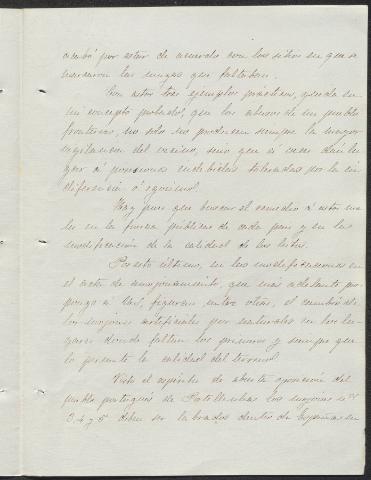 acabó por estar de acuerdo con los sitios en que se
marcaron las mugas que faltaban.
Con estos tres ejemplos prácticos, queda en
mi concepto probado, que los abusos de un pueblo
fronterizo, no solo no producen siempre la mayor
vigilancia del vecino, sino que a veces dan lu
gar á posesiones indebidas toleradas por la in
diferencia ó egoismo.
Hay pues que buscar el remedio á estos ma
les en la fuerza pública de cada pais y en la
modificación de la calidad de los hitos.
Por esto último, en las modificaciones en
el acta de amojonamiento, que mas adelante pro
pongo á V.E., figuran entre otras, el cambio de
los mojones artificiales por naturales en los lu
gares donde falten los primeros y siempre que
lo permita la calidad del terreno.
Visto el espíritu de abierta oposición del
pueblo portugués de los mojones nos
3, 4 y 5 deben ser labrados dentro de España en